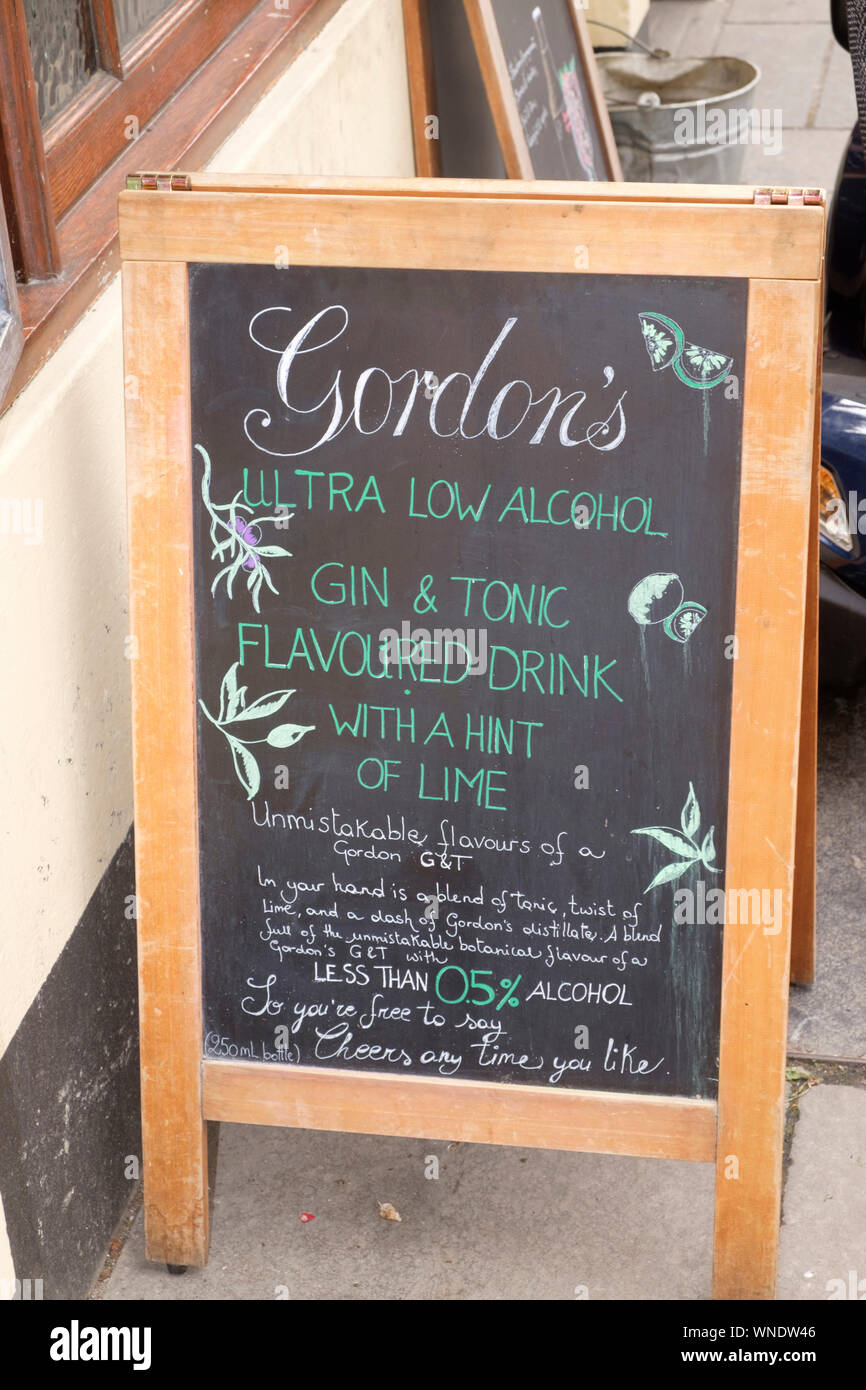 Gordon's
ULTRA LOW ALCOHOL
GIN & TONIC
FLAVOURED DRINK
WITH A HINT
OF LIME
Unmistakable flavours of a
Gordon G&T
In your hand is a blend of tonic, twist of
Lime, and a dash of Gordon's distillate. A blend
full of the unmistakable botanical flavour of a
Gordon's G&T with
LESS THAN 0.5% ALCOHOL
So you're free to say
(250mL bottle) Cheers any time you like.
alamy
Image ID: WNDW46
www.alamy.com